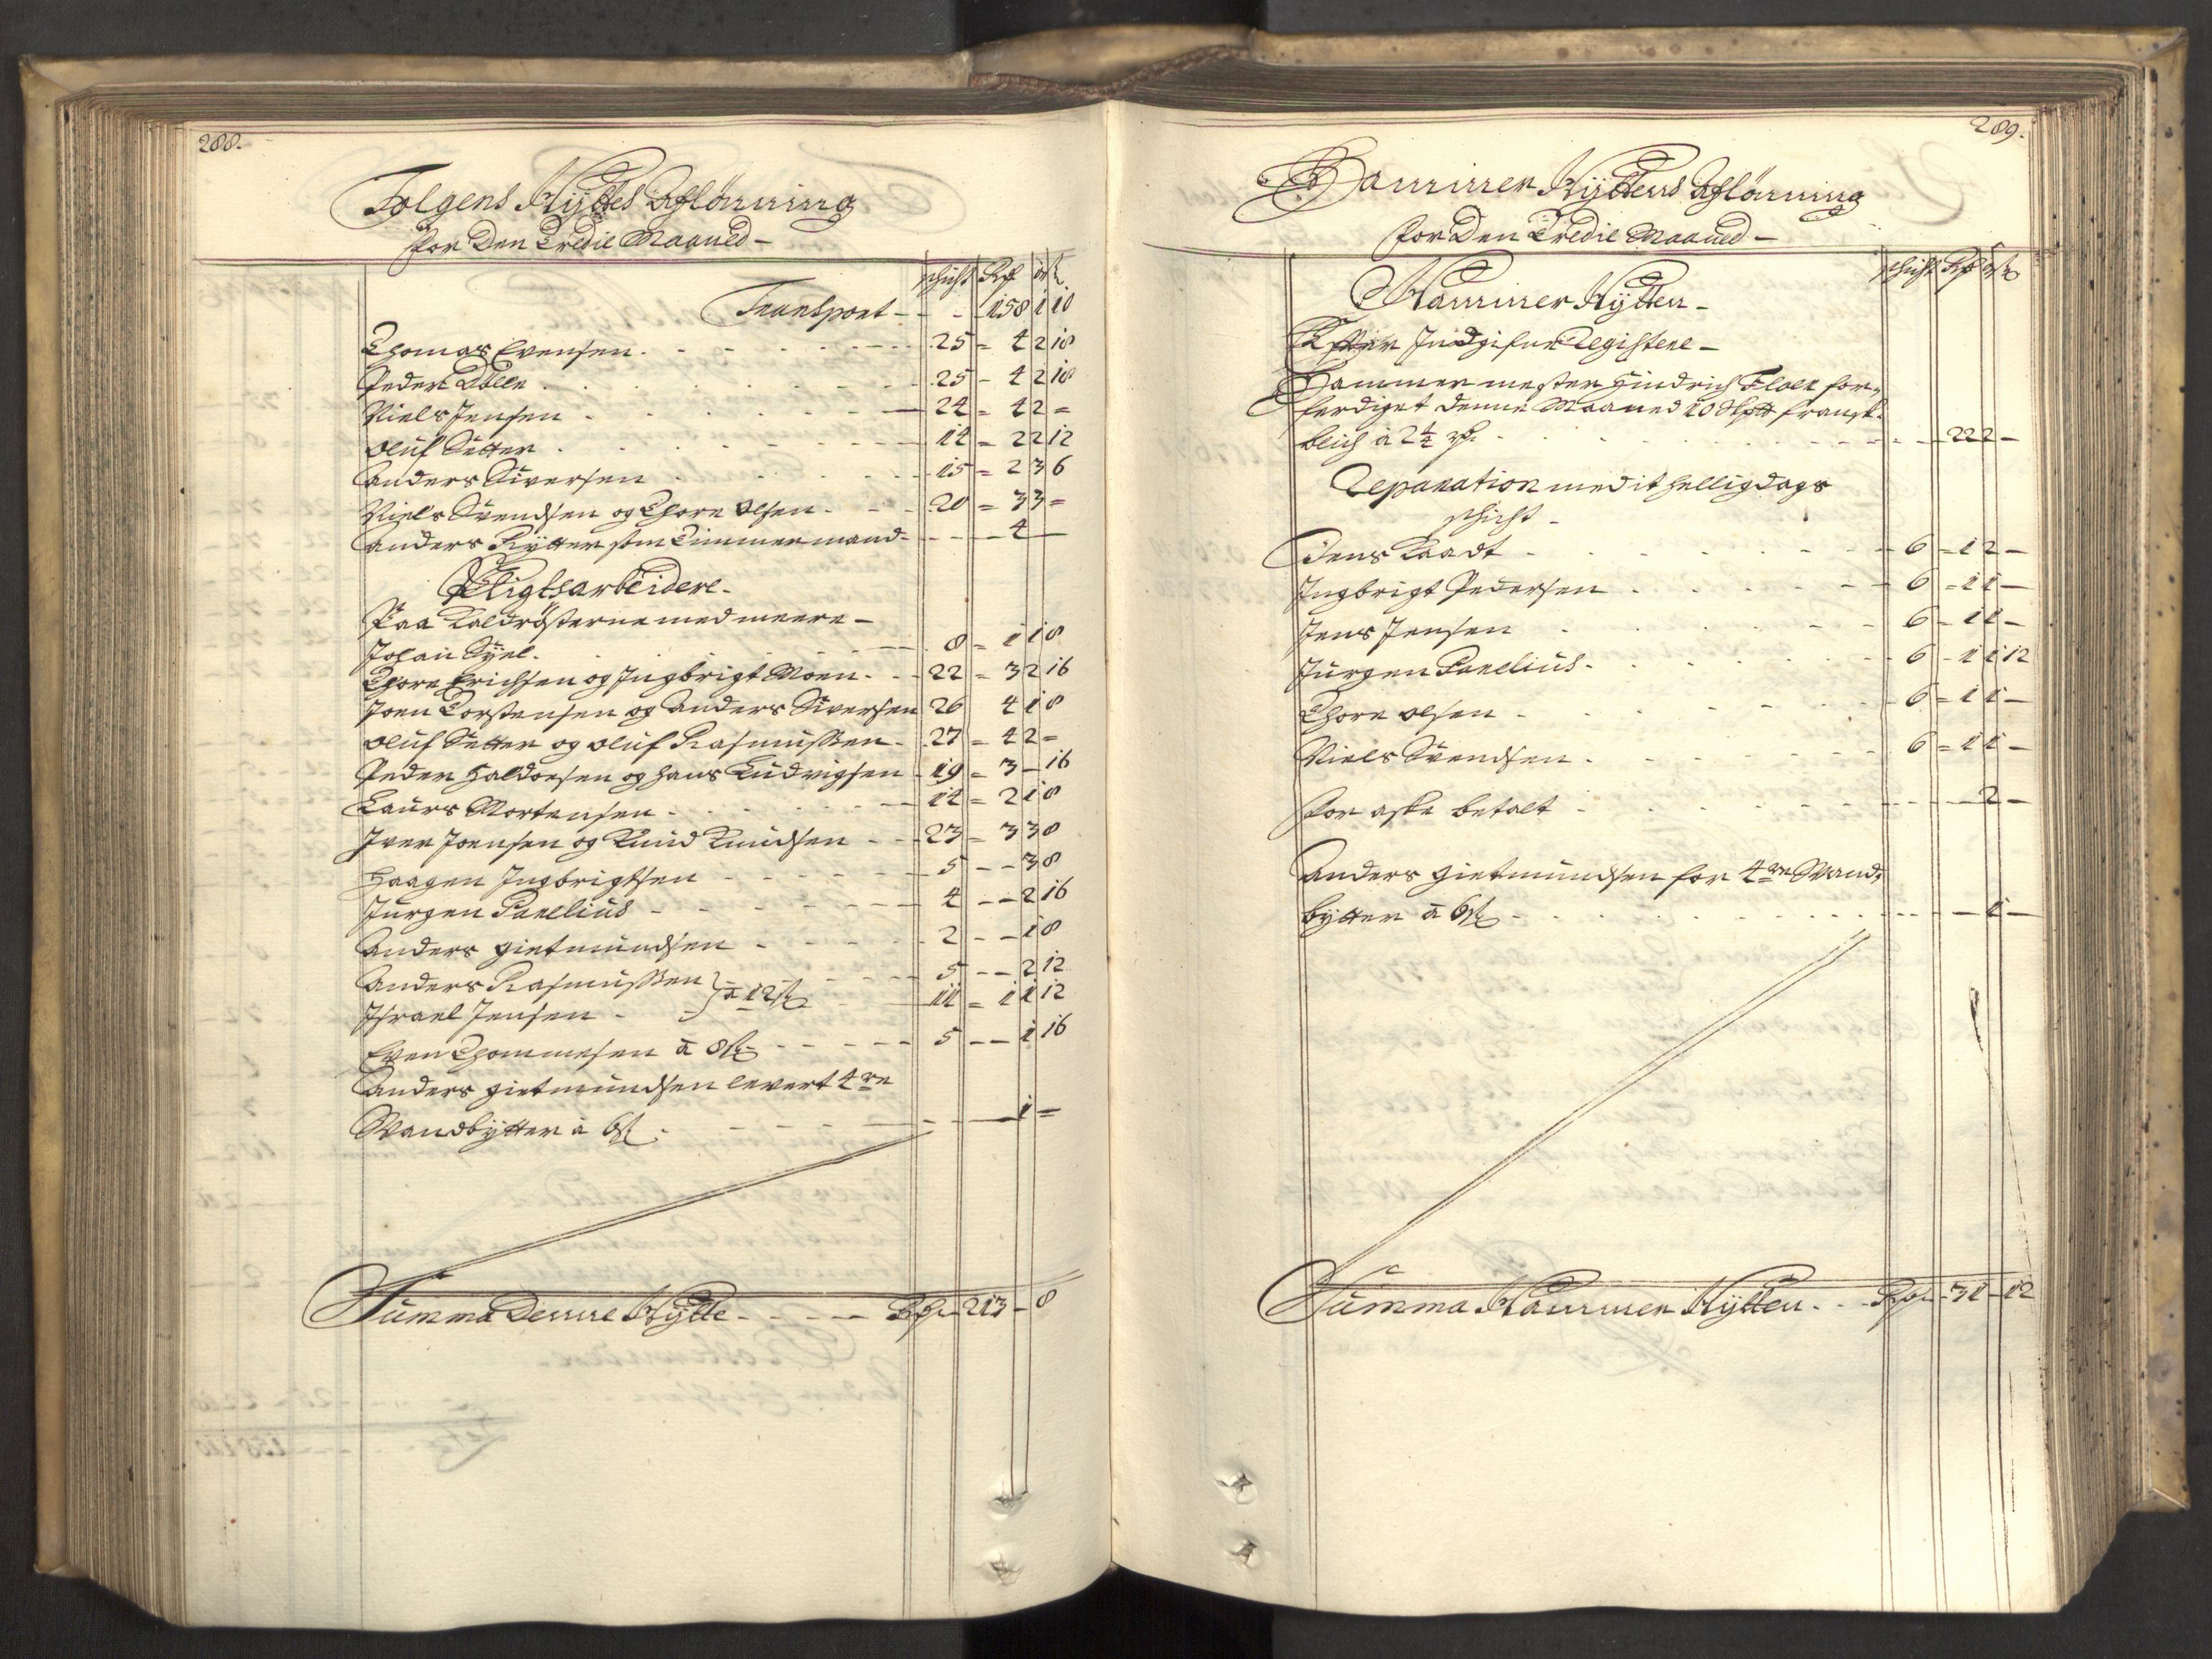 288.
Folgens Hÿttes Afløning
for Den Tredie Maaned -
schicht Rdr ort ß
Transport - - - 158 1 10
Thomas Evensen. - - - 25 = 4 2 18
Peder Dølle - - - 25 - 4 2 18
Niels Jensen - - - 24 = 4 2 =
Oluf Setter - - - 14 = 2 2 12
Anders Siversen - - - 15 = 2 3 6
Niels Svendsen og Thore Olsen - - 20 = 3 3 =
Anders Rÿtter som Timmermand - - - 4 -
Pligtsarbeidere.
Paa Kaldrøsterne med meere -
Johan Sÿel. - - - 8 = 1 1 8
Thore Erichsen og Ingbrigt Moen. - - 22 = 3 2 16
Joen Torstensen og Anders Siversen 26 4 1 8
Oluf Setter og Oluf Rasmussen - 27 = 4 2 =
Peder Haldorsen og Hans Ludvigsen - 19 = 3 - 16
Laurs Mortensen - - - 14 = 2 1 8
Iver Joensen og Knud Knudsen - - 23 = 3 3 8
Haagen Ingbrigtsen - - - 5 - - 3 8
Jürgen Panelius - - - 4 - - 2 16
Anders Gietmundsen - - - 2 - - 1 8
Anders Rasmussen } à 12 ß - - - 5 - - 2 12
Israel Jensen - - - 11 = 1 1 12
Even Thommesen à 8 ß - - - 5 - - 1 16
Anders Gietmundsen levert 4re
Vandbÿtter à 6 ß - - - 1 =
Summa Denne Hÿtte - - - Rdr - 213 - 8
289.
Hammer Hÿttens Afløning
for Den Tredie Maaned -
schicht Rdr ort ß
Hammer Hÿtten -
Efter Indgifne Registere -
Hammermester Hindrich Floer for-
ferdiget denne Maaned 10 Skpd fransk-
blich à 2 1/4 rdr. - - - 22 2 -
Reparation med it helligdags
schicht -
Jens Kaadt - - - 6 = 1 2 -
Ingbrigt Pedersen - - - 6 = 1 1 -
Jens Jensen - - - 6 - 1 1 -
Jürgen Panelius - - - 6 - 1 1 12
Thore Olsen - - - 6 = 1 1 -
Niels Svendsen - - - 6 = 1 1 -
For aske betalt - - - 2 -
Anders Gietmundsen for 4re Vand-
bÿtter à 6 ß - - - 1 -
Summa Hammer Hÿtten - - Rdr - 31 - 12